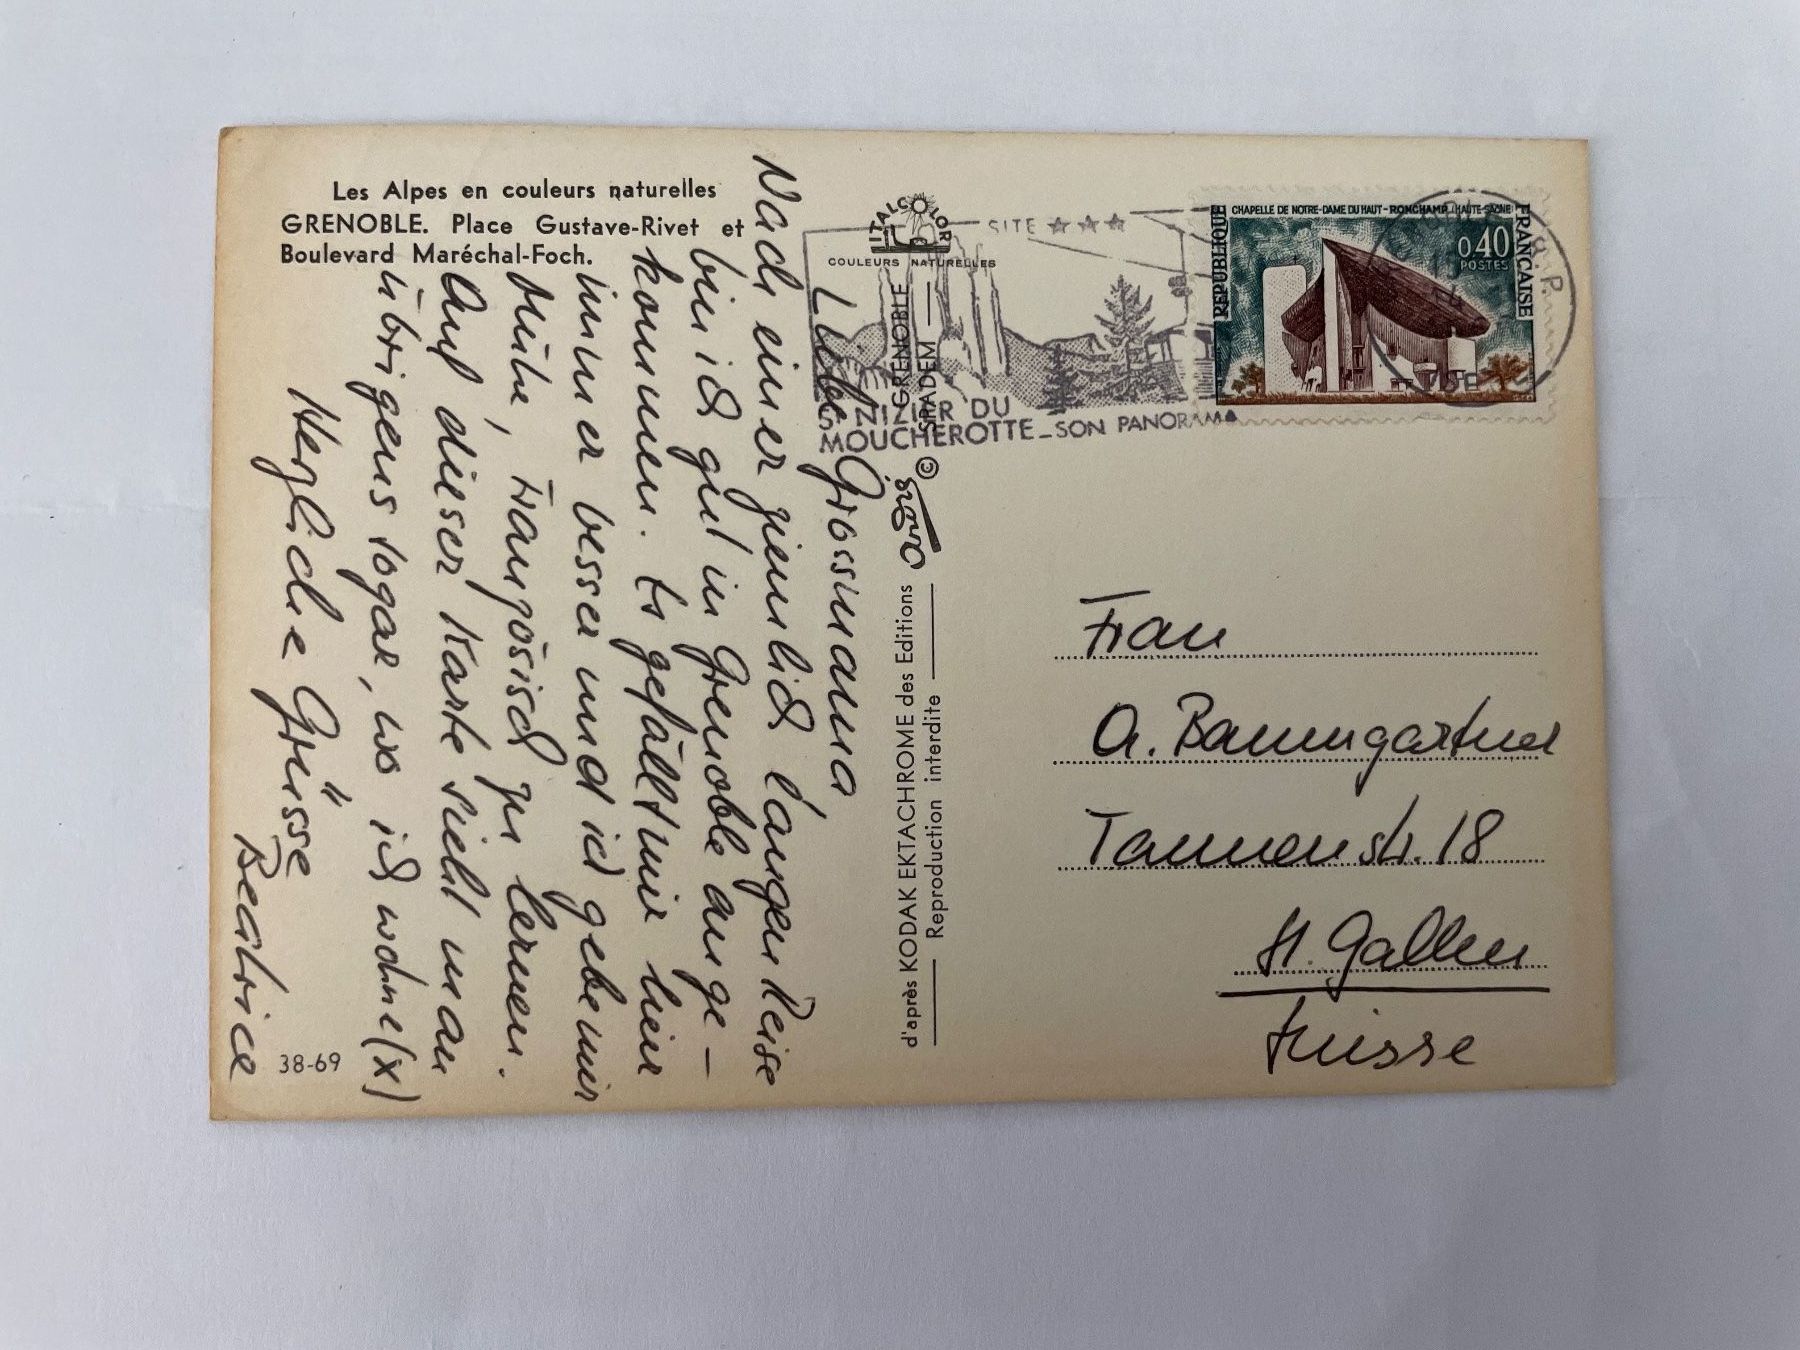 Les Alpes en couleurs naturelles
GRENOBLE. Place Gustave-Rivet et
Boulevard Maréchal-Foch.
Liebe Grossmama
Nach einer ziemlich langen Reise
bin ich gut in Grenoble ange-
kommen. Es gefällt mir hier
immer besser und ich gebe mir
Mühe, Französisch zu lernen.
Auf dieser Karte sieht man
übrigens sogar, wo ich wohne (x)
Herzliche Grüsse
Beatrice
38-69
ITALCOLOR
COULEURS NATURELLES
GRENOBLE
SPADEM
©
d'après KODAK EKTACHROME des Editions
Reproduction interdite
SITE ★★★
ST NIZIER DU
MOUCHEROTTE_SON PANORAMA
CHAPELLE DE NOTRE-DAME DU HAUT-RONCHAMP (HAUTE-SAÔNE)
RÉPUBLIQUE
FRANÇAISE
0,40
POSTES
R.P.
ISERE
Frau
A. Baumgartner
Tannenstr. 18
St. Gallen
Suisse